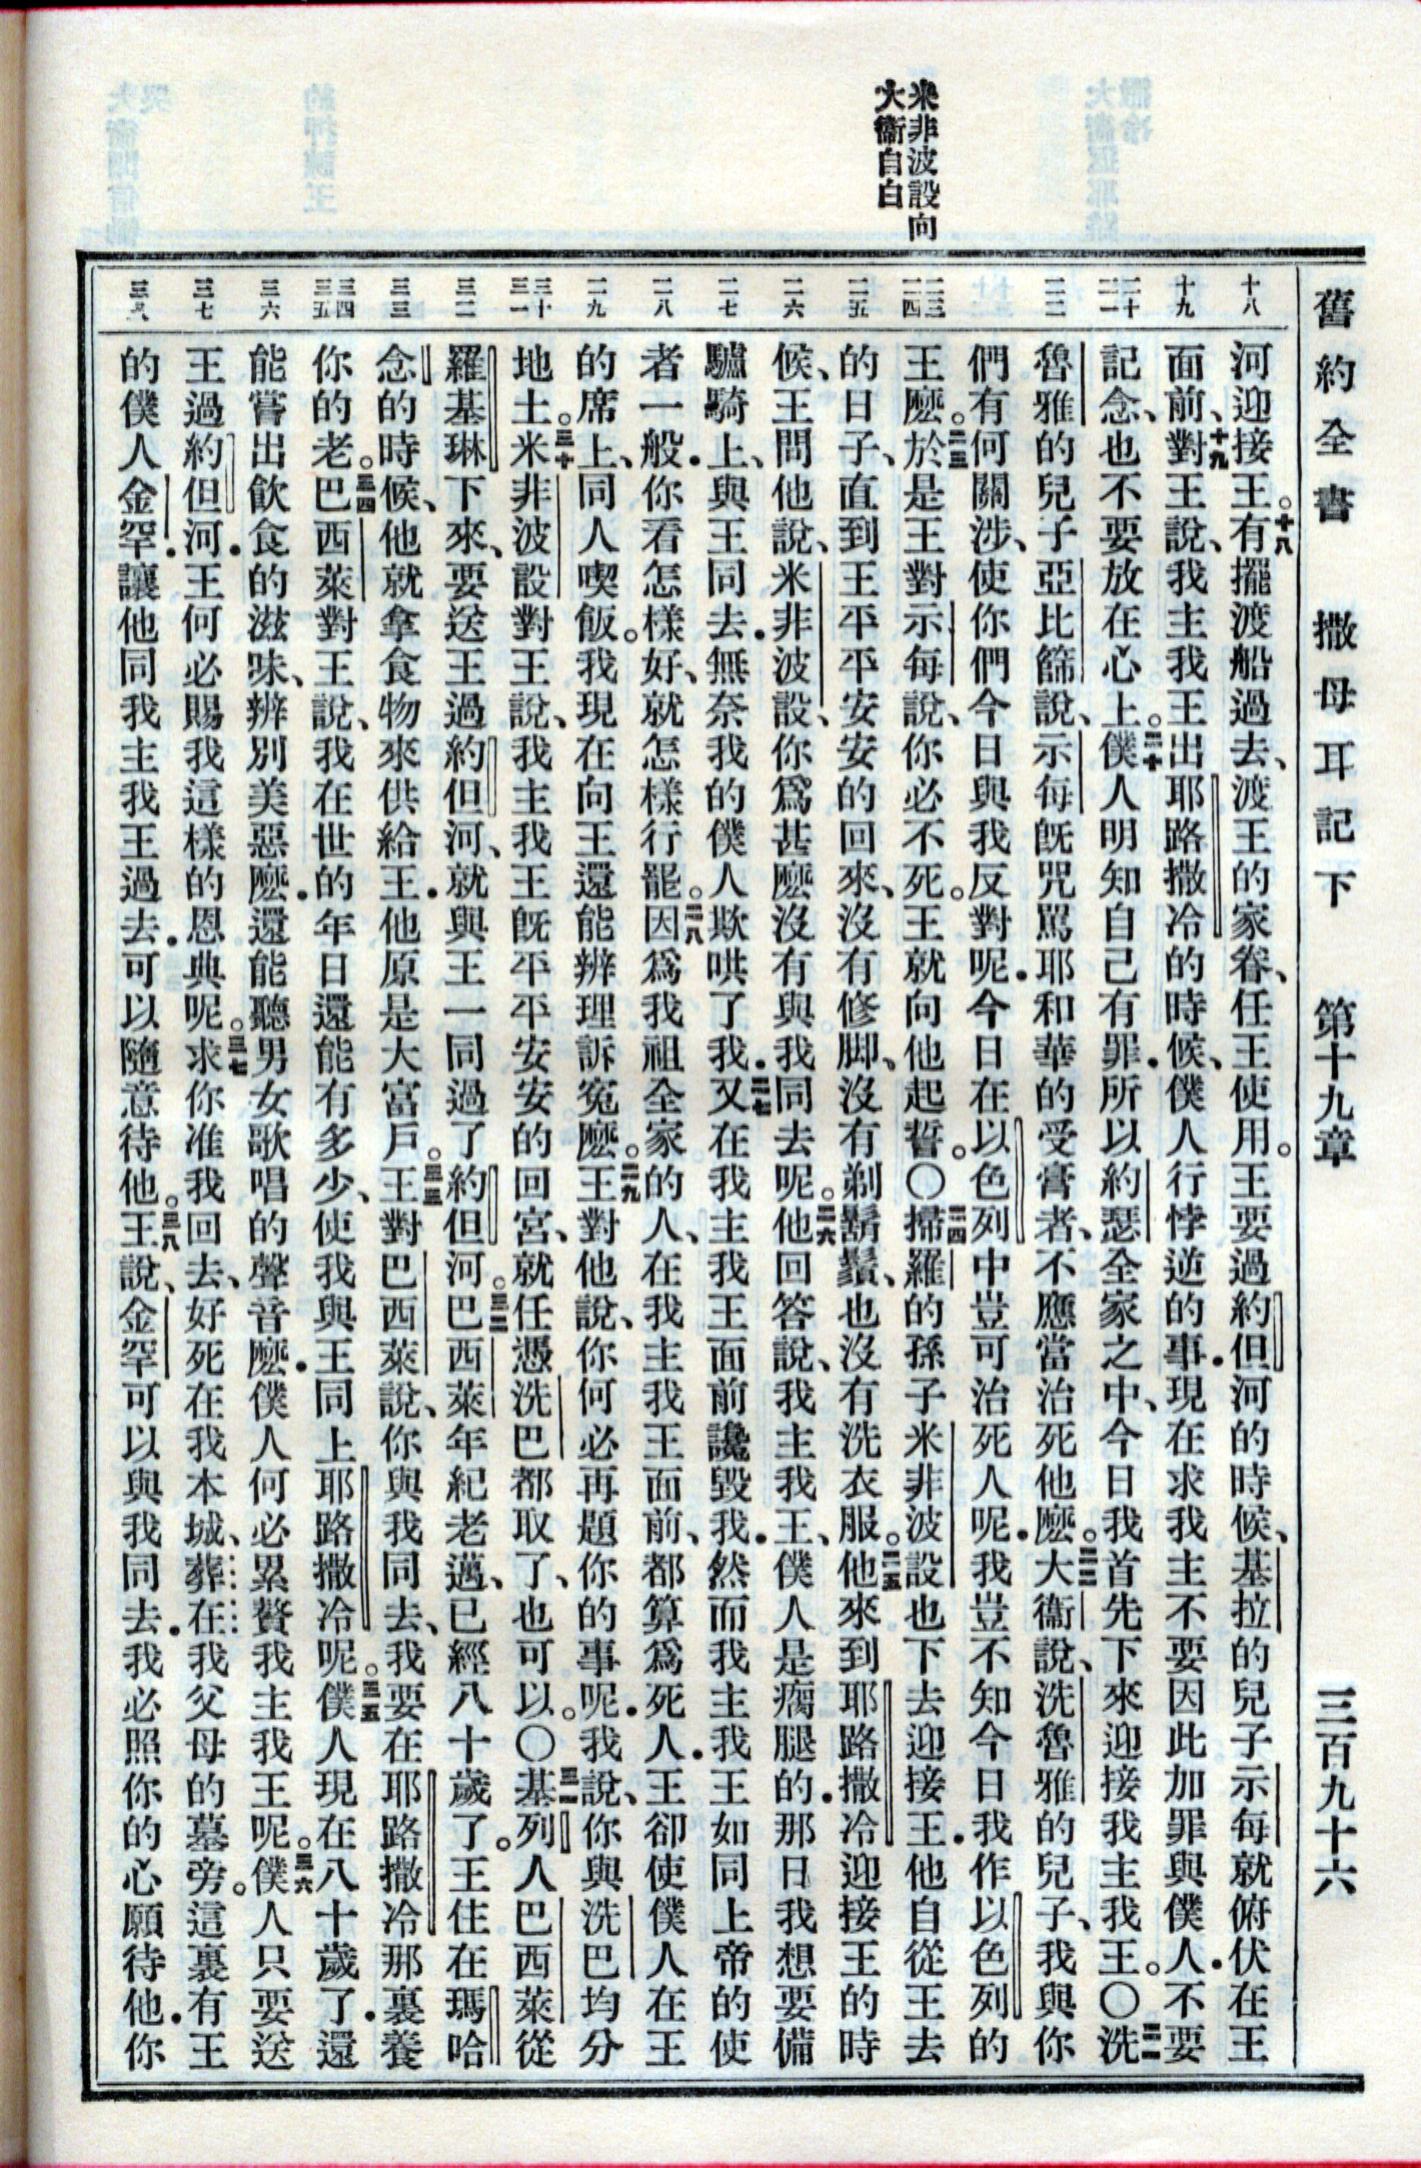 米非波設向
大衞自白
舊約全書　撒母耳記下　第十九章　三百九十六
十八
十九
二十
二一
二二
二三
二四
二五
二六
二七
二八
二九
三十
三一
三二
三三
三四
三五
三六
三七
三八
河迎接王。十八有擺渡船過去、渡王的家眷、任王使用。王要過約但河的時候、基拉的兒子示每就俯伏在王
面前、十九對王說、我主我王出耶路撒冷的時候、僕人行悖逆的事．現在求我主不要因此加罪與僕人．不要
記念、也不要放在心上。二十僕人明知自己有罪．所以約瑟全家之中、今日我首先下來迎接我主我王。〇二一洗
魯雅的兒子亞比篩說、示每旣咒罵耶和華的受膏者、不應當治死他麼。二二大衞說、洗魯雅的兒子、我與你
們有何關涉、使你們今日與我反對呢．今日在以色列中豈可治死人呢．我豈不知今日我作以色列的
王麼。二三於是王對示每說、你必不死。王就向他起誓。〇二四掃羅的孫子米非波設也下去迎接王．他自從王去
的日子、直到王平平安安的回來、沒有修脚、沒有剃鬍鬚、也沒有洗衣服。二五他來到耶路撒冷迎接王的時
候、王問他說、米非波設、你爲甚麼沒有與我同去呢。二六他回答說、我主我王、僕人是瘸腿的．那日我想要備
驢騎上、與王同去．無奈我的僕人欺哄了我．二七又在我主我王面前讒毀我．然而我主我王如同上帝的使
者一般．你看怎樣好、就怎樣行罷。二八因爲我祖全家的人、在我主我王面前、都算爲死人．王卻使僕人在王
的席上、同人喫飯。我現在向王還能辨理訴冤麼。二九王對他說、你何必再題你的事呢．我說、你與洗巴均分
地土。三十米非波設對王說、我主我王旣平平安安的回宮、就任憑洗巴都取了、也可以。〇三一基列人巴西萊從
羅基琳下來、要送王過約但河、就與王一同過了約但河。三二巴西萊年紀老邁、已經八十歲了。王住在瑪哈
念的時候、他就拿食物來供給王．他原是大富戶。三三王對巴西萊說、你與我同去、我要在耶路撒冷那裏養
你的老。三四巴西萊對王說、我在世的年日還能有多少、使我與王同上耶路撒冷呢。三五僕人現在八十歲了．還
能嘗出飲食的滋味、辨別美惡麼．還能聽男女歌唱的聲音麼．僕人何必累贅我主我王呢。三六僕人只要送
王過約但河．王何必賜我這樣的恩典呢。三七求你准我回去、好死在我本城、葬在我父母的墓旁。這裏有王
的僕人金罕．讓他同我主我王過去．可以隨意待他。三八王說、金罕可以與我同去．我必照你的心願待他．你